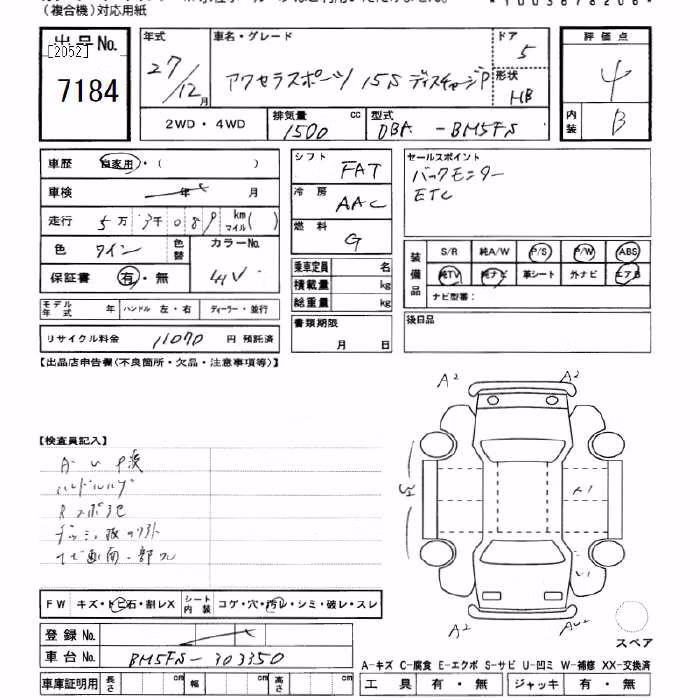 (複合機)対応用紙
出品No.
[2052]
7184
年式
27/12月
車名・グレード
アクセラスポーツ 15S ディスチャージP
ドア
5
形状
HB
2WD・4WD
排気量
1500 cc
型式
DBA-BM5FS
評価点
4
内装
B
車歴 自家用・( )
車検 年 月
走行 5万3千089 km マイル( )
色 ワイン 色替 カラーNo. 41V
保証書 有・無
シフト FAT
冷房 AAC
燃料 G
乗車定員 名
積載量 kg
総重量 kg
書類期限
月 日
セールスポイント
バックモニター
ETC
装備品
S/R 純A/W P/S P/W ABS
純TV 純ナビ 革シート 外ナビ エアB
ナビ型番:
後日品
モデル年式 年 ハンドル 左・右 ディーラー・並行
リサイクル料金 11070 円 預託済
【出品店申告欄(不良箇所・欠品・注意事項等)】
A2 A2
【検査員記入】
ハンドルハゲ
A1
A2
F W キズ・トビ石・割レX シート内装 コゲ・穴・汚レ・シミ・破レ・スレ
登録No.
車台No. BM5FS-303350
スペア
A-キズ C-腐食 E-エクボ S-サビ U-凹ミ W-補修 XX-交換済
車庫証明用 長さ cm 幅 cm 高さ cm
工具 有・無 ジャッキ 有・無